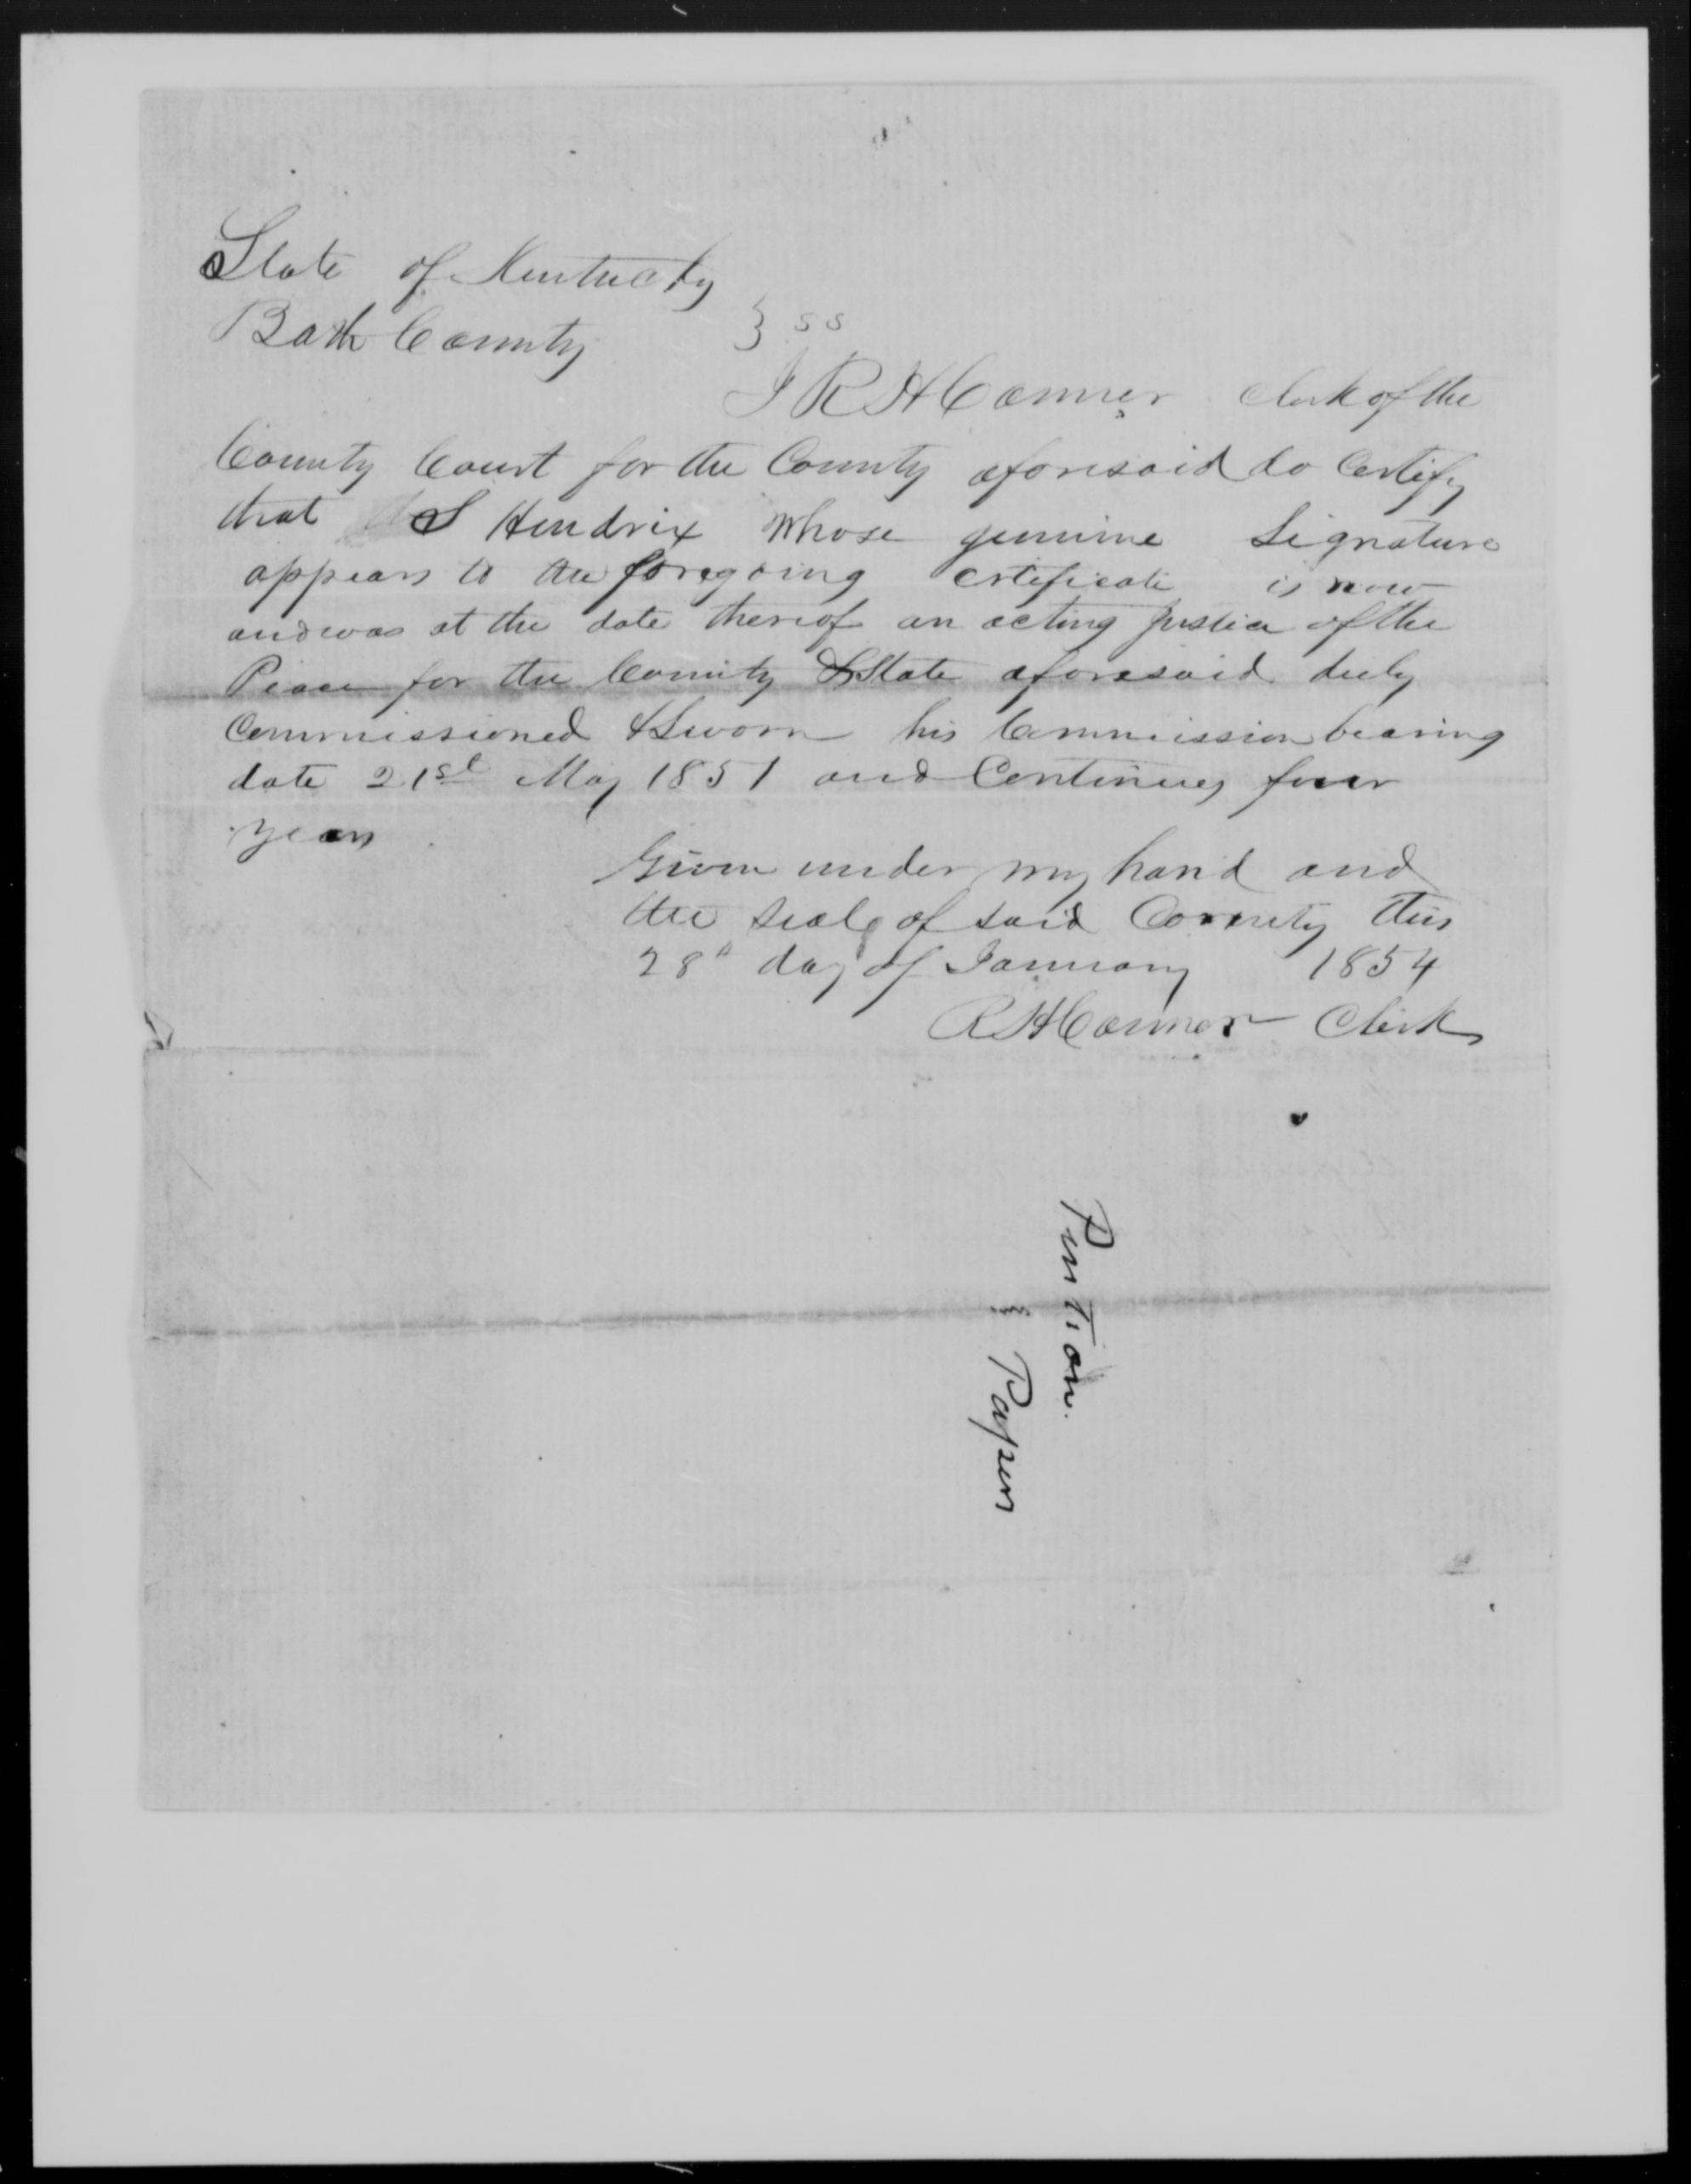 State of Kentucky
Bath County } ss
I R H Conner Clerk of the
County Court for the County aforesaid do Certify
that S Hendrix whose genuine Signature
appears to the foregoing certificate is now
and was at the date thereof an acting Justice of the
Peace for the County & State aforesaid duly
Commissioned & Sworn his Commission bearing
date 21st May 1851 and Continues four
years
Given under my hand and
the seal of said County this
28th day of January 1854
R H Conner Clerk
Pention
Papers